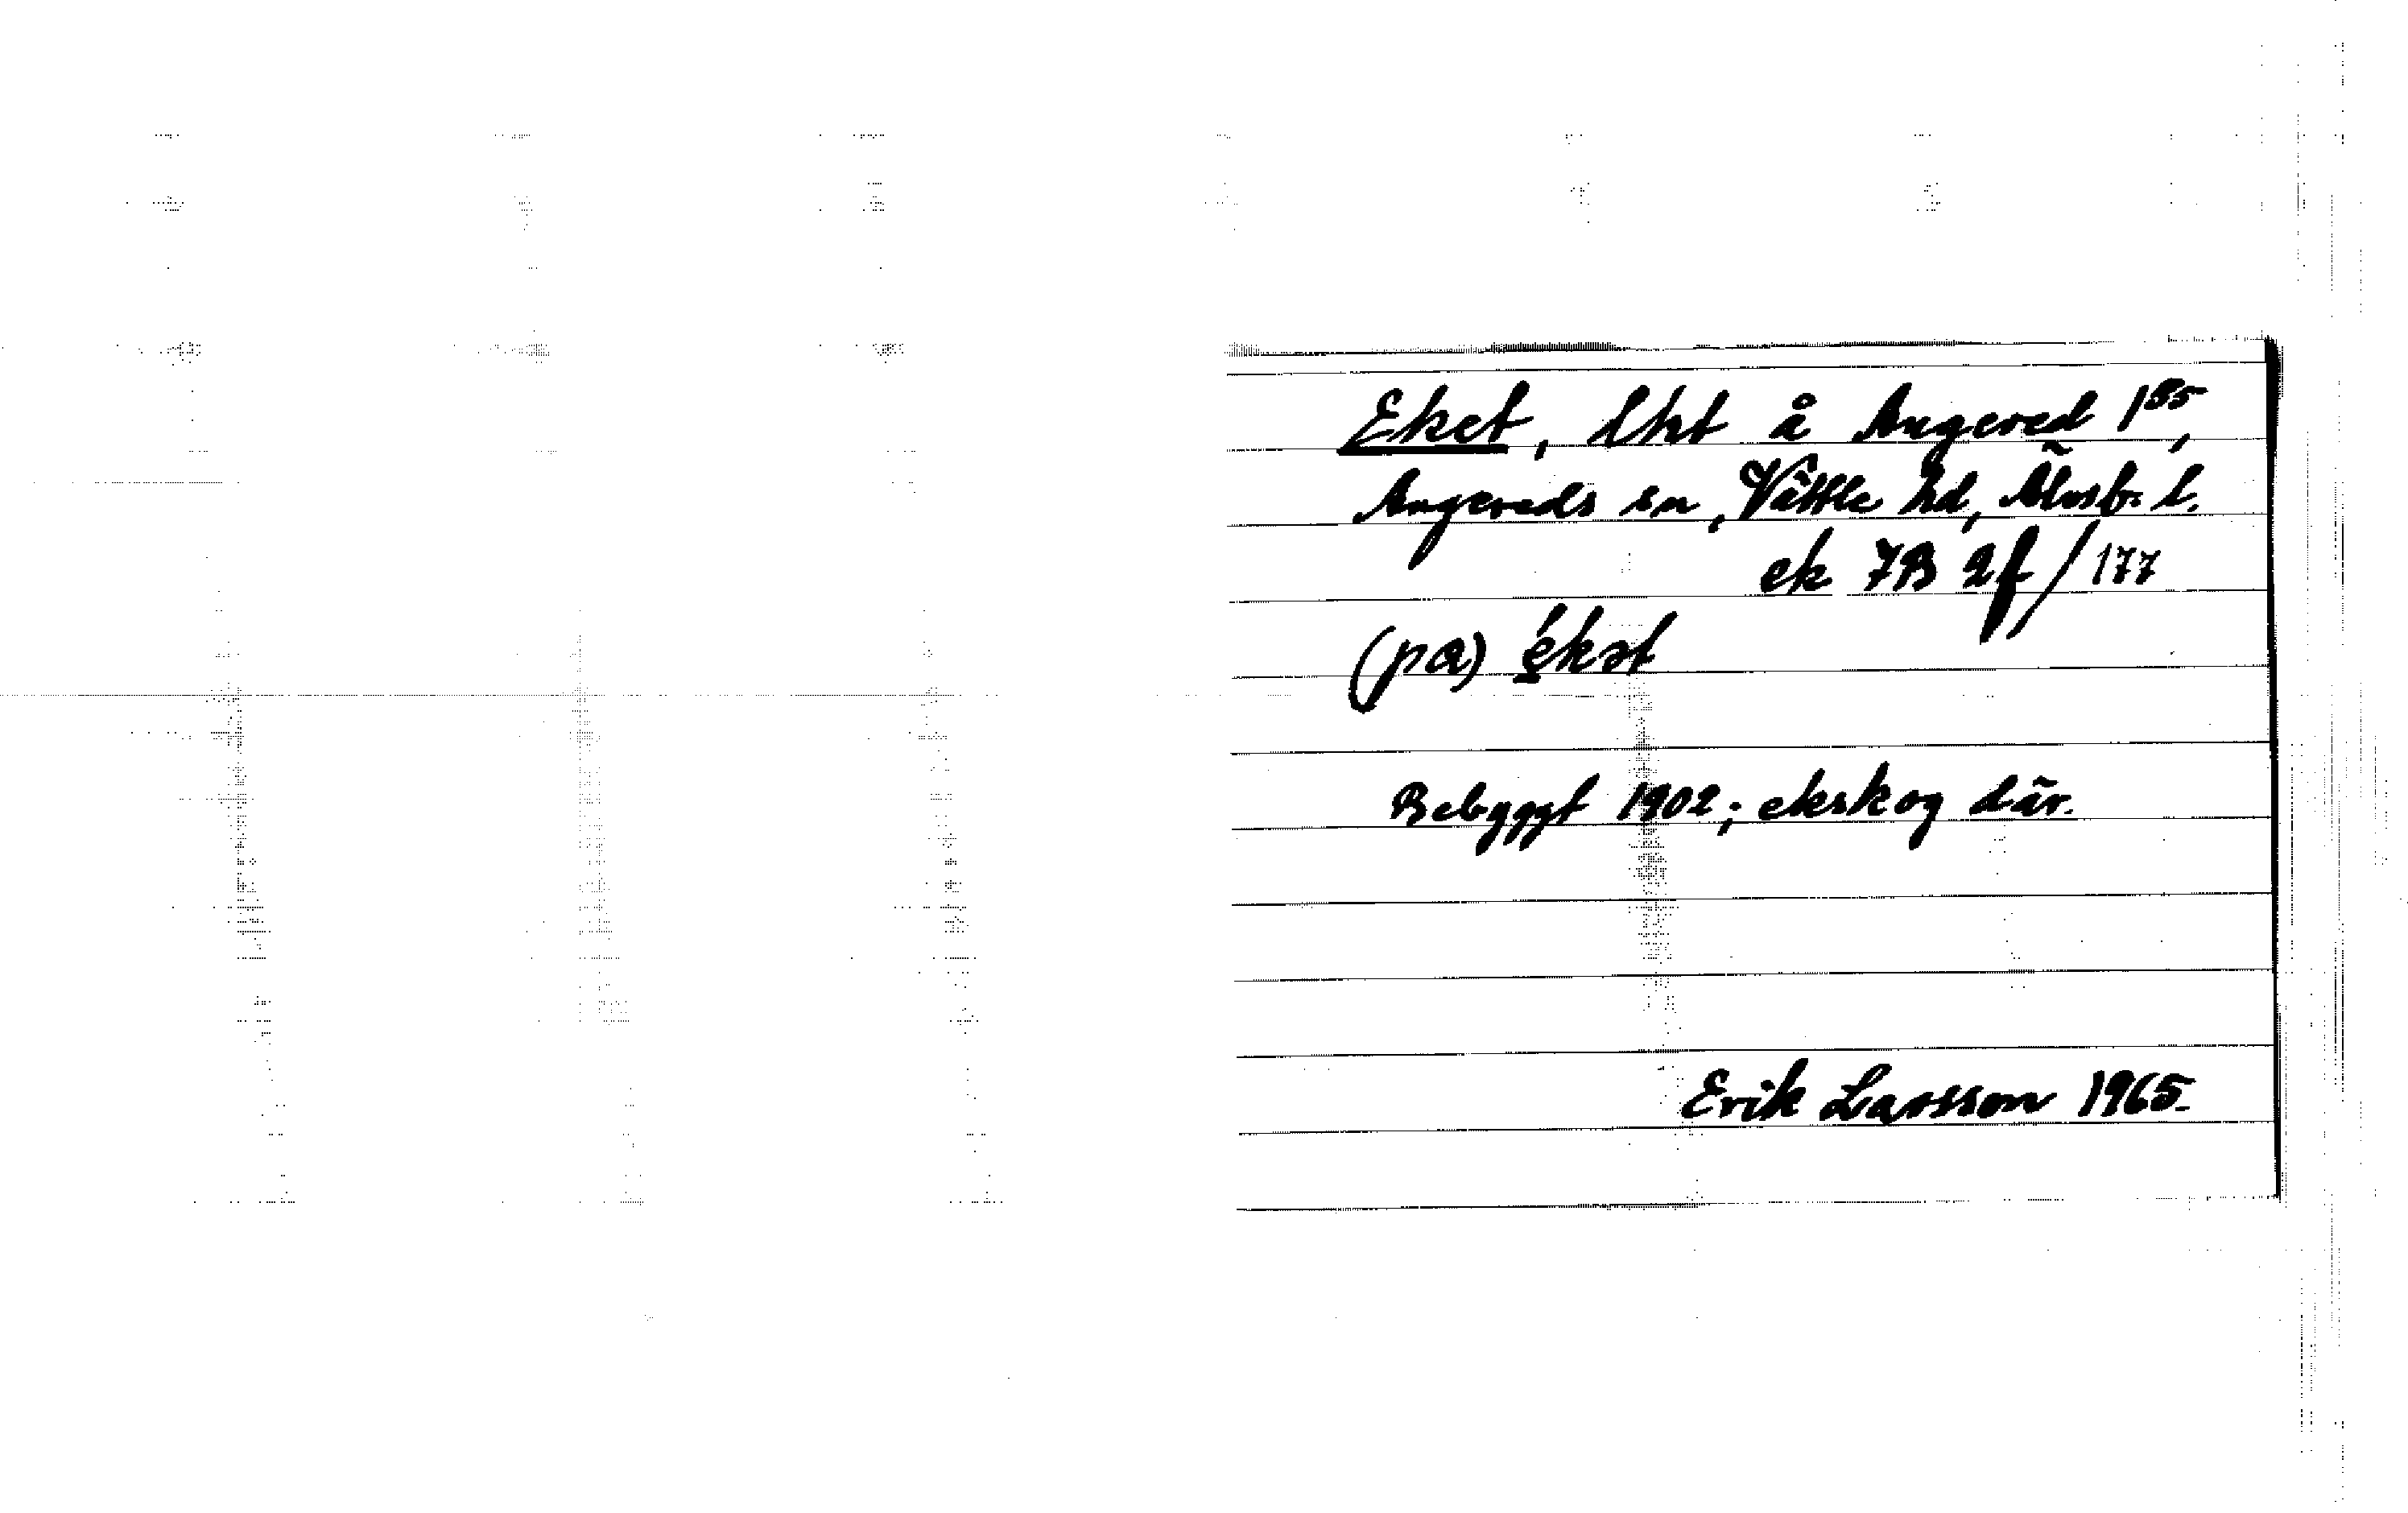 Eket, lht å Angered 1⁸⁵,
Angereds sn, Vättle hd, Älvsb. l.
ek 7B 2f/177
(pa) ékət
Bebyggt 1902; ekskog där.
Erik Larsson 1965.